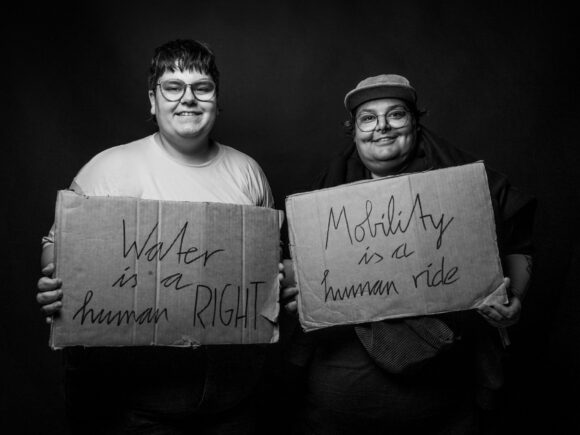 Water
is a
human RIGHT
Mobility
is a
human ride